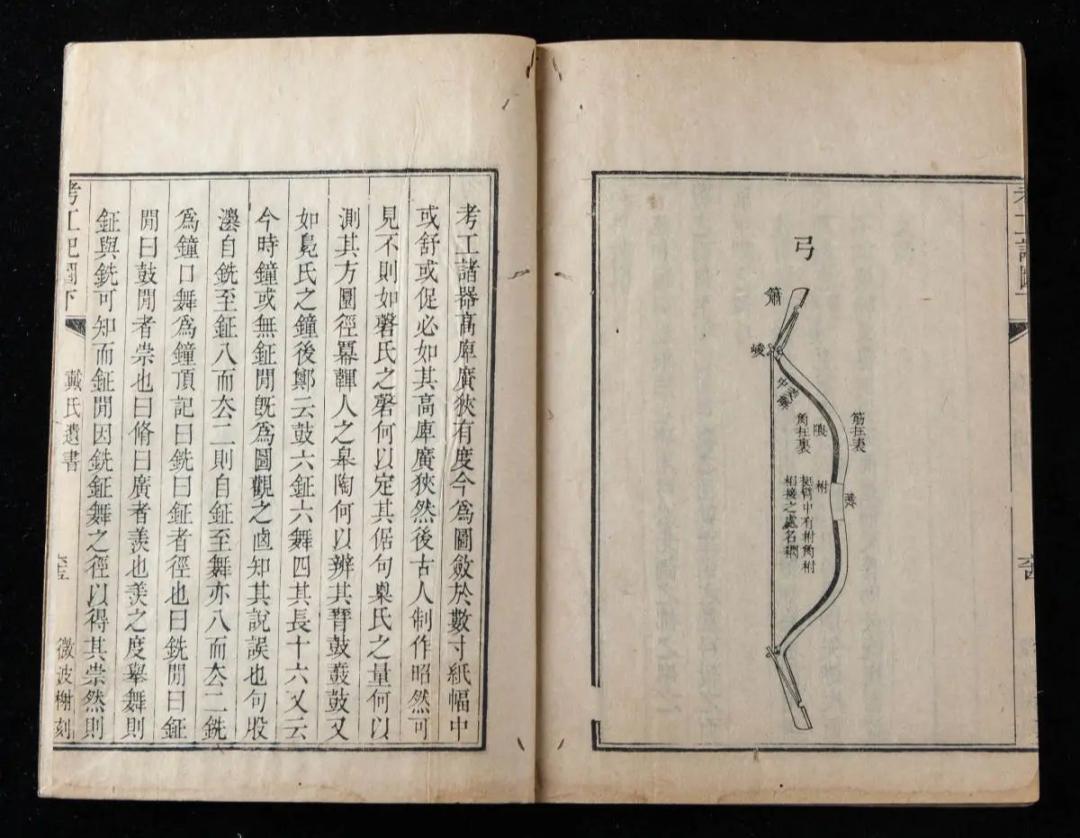 弓
簫
峻
筋在表
隈
角在裏
柎
挺臂中有柎角柎
相接之處名
考工諸器高庳廣狹有度今爲圖斂於數寸紙幅中
或舒或促必如其高庳廣狹然後古人制作昭然可
見不則如磬氏之磬何以定其倨句㮚氏之量何以
測其方圜徑冪韗人之皋陶何以辨其鼖鼓鼛鼓又
如鳧氏之鐘後鄭云鼓六鉦六舞四其長十六又云
今時鐘或無鉦閒旣爲圖觀之直知其說誤也句股
灋自銑至鉦八而厺二則自鉦至舞亦八而厺二銑
爲鐘口舞爲鐘頂記曰銑曰鉦者徑也曰銑閒曰鉦
閒曰鼓閒者崇也曰脩曰廣者羨也羨之度舉舞則
鉦與銑可知而鉦閒因銑鉦舞之徑以得其崇然則
考工記圖下
戴氏遺書
六五
微波榭刻